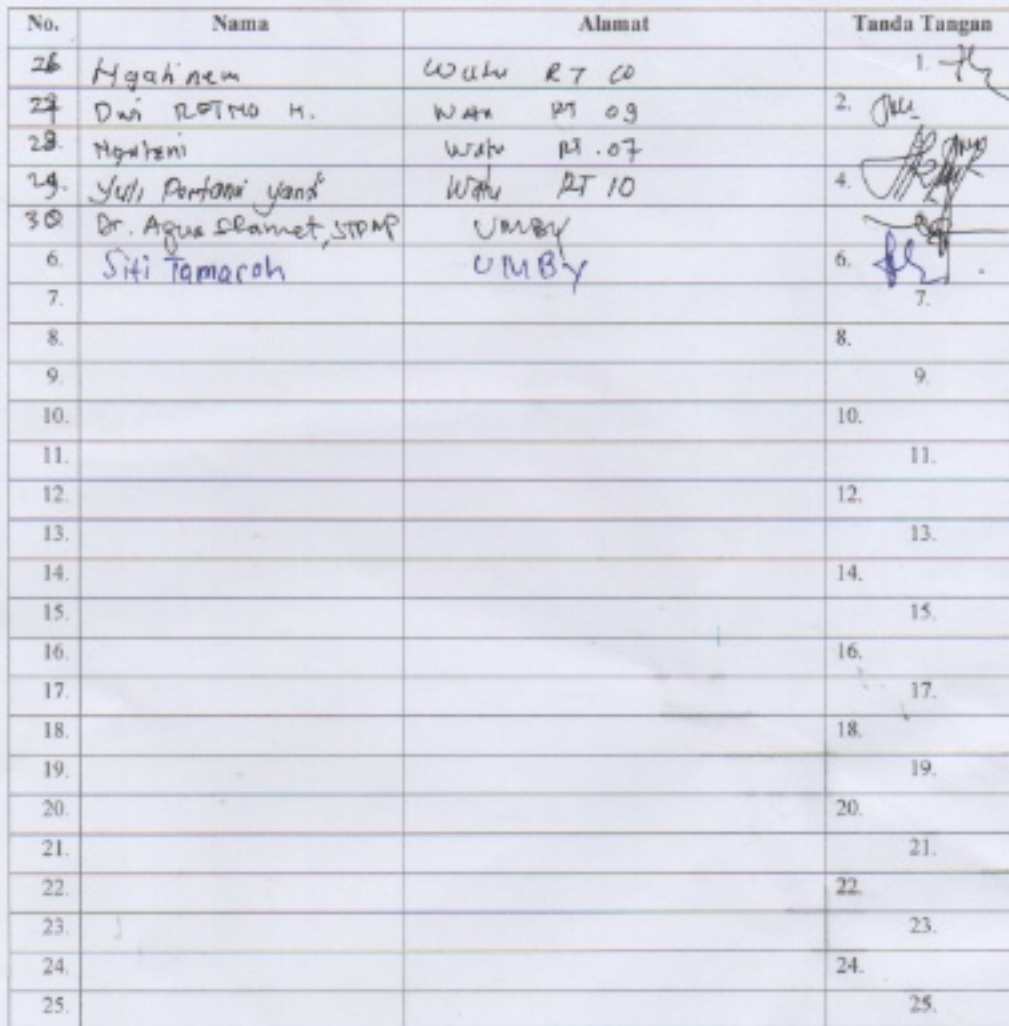 No. Nama Alamat Tanda Tangan
26 Ngatinem Watu RT 10 1.
27 Dwi RETNO H. Watu RT 09 2.
28. Ngatemi Watu RT.07
29. Yuli yanti Watu RT 10 4.
30 Dr. Agus Slamet, STP.MP UMBY
6. Siti Tamaroh UMBY 6.
7. 7.
8. 8.
9. 9.
10. 10.
11. 11.
12. 12.
13. 13.
14. 14.
15. 15.
16. 16.
17. 17.
18. 18.
19. 19.
20. 20.
21. 21.
22. 22.
23. 23.
24. 24.
25. 25.